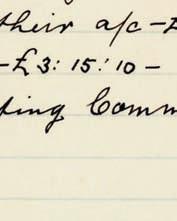 their a/c -£
-£3:15:10-
ting Comm